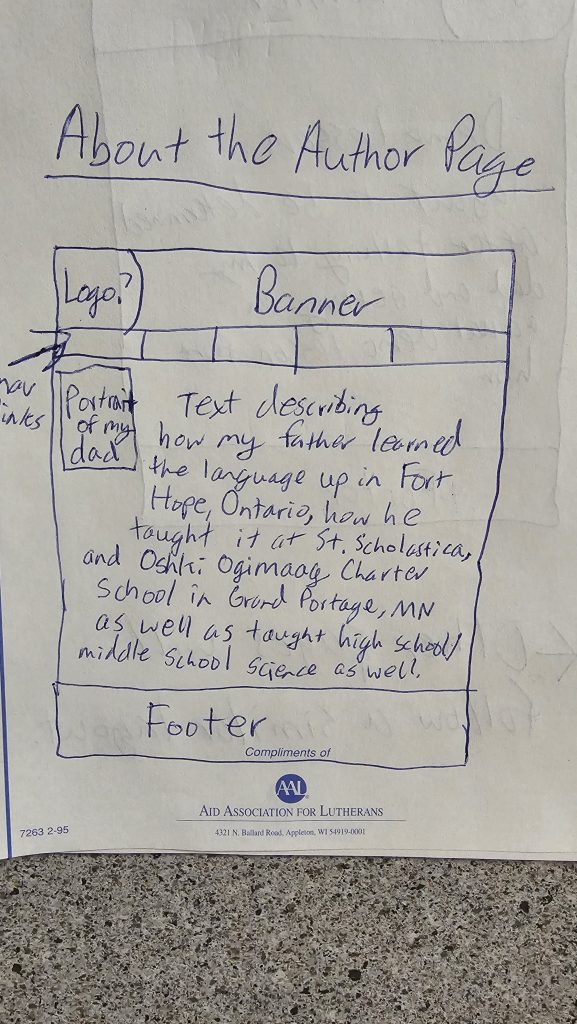 About the Author Page
Logo?
Banner
nav
links
Portrait
of my
dad
Text describing
how my father learned
the language up in Fort
Hope, Ontario, how he
taught it at St. Scholastica,
and Oshki Ogimaag Charter
School in Grand Portage, MN
as well as taught high school/
middle school science as well.
Footer
Compliments of
AAL
AID ASSOCIATION FOR LUTHERANS
4321 N. Ballard Road, Appleton, WI 54919-0001
7263 2-95